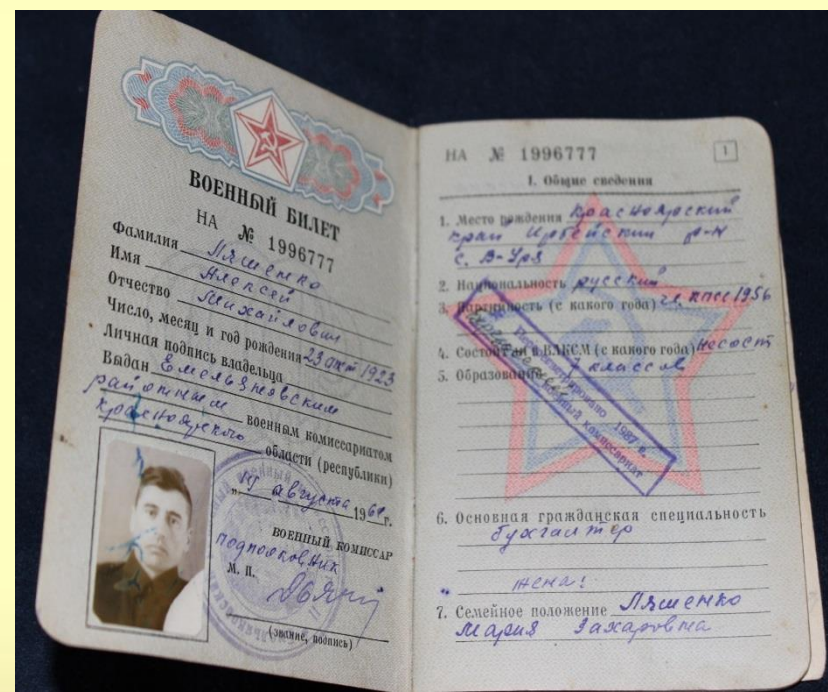 ВОЕННЫЙ БИЛЕТ
НА № 1996777
Фамилия Ляшенко
Имя Алексей
Отчество Михайлович
Число, месяц и год рождения 23 окт 1923
Личная подпись владельца
Выдан Емельяновским
районным военным комиссариатом
Красноярского области (республики)
августа 196 г.
ВОЕННЫЙ КОМИССАР
подполковник
М. П.
(звание, подпись)
НА № 1996777
1
I. Общие сведения
1. Место рождения Красноярский
край Ирбейский р-н
с. В-Уря
2. Национальность русский
3. Партийность (с какого года) чл. КПСС 1956
4. Состоял ли в ВЛКСМ (с какого года) не сост
5. Образование 7 классов
Перерегистрировано 1987 г.
военный комиссариат
6. Основная гражданская специальность
бухгалтер
жена:
7. Семейное положение Ляшенко
Мария Захаровна